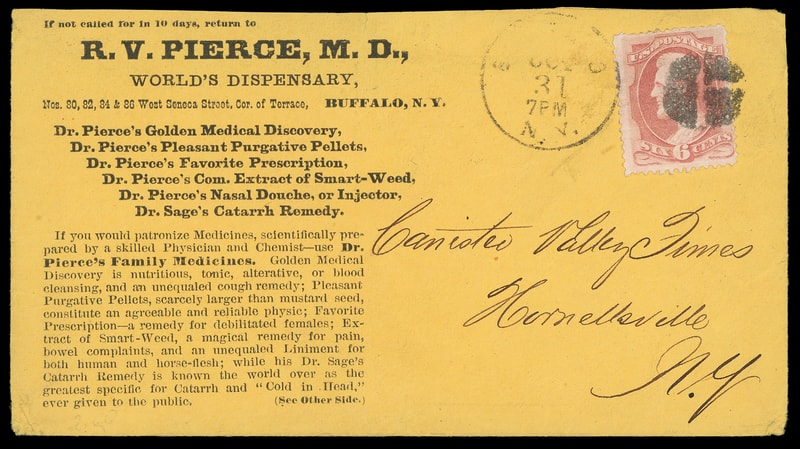 If not called for in 10 days, return to
R. V. PIERCE, M. D.,
WORLD'S DISPENSARY,
Nos. 80, 82, 84 & 86 West Seneca Street, Cor. of Terrace, BUFFALO, N. Y.
Dr. Pierce's Golden Medical Discovery,
Dr. Pierce's Pleasant Purgative Pellets,
Dr. Pierce's Favorite Prescription,
Dr. Pierce's Com. Extract of Smart-Weed,
Dr. Pierce's Nasal Douche, or Injector,
Dr. Sage's Catarrh Remedy.
If you would patronize Medicines, scientifically pre-
pared by a skilled Physician and Chemist—use Dr.
Pierce's Family Medicines. Golden Medical
Discovery is nutritious, tonic, alterative, or blood
cleansing, and an unequaled cough remedy; Pleasant
Purgative Pellets, scarcely larger than mustard seed,
constitute an agreeable and reliable physic; Favorite
Prescription—a remedy for debilitated females; Ex-
tract of Smart-Weed, a magical remedy for pain,
bowel complaints, and an unequaled Liniment for
both human and horse-flesh; while his Dr. Sage's
Catarrh Remedy is known the world over as the
greatest specific for Catarrh and "Cold in Head,"
ever given to the public. (See Other Side.)
31
7PM
N. Y.
U.S. POSTAGE
SIX 6 CENTS
Canisteo Valley Times
Hornellsville
N.Y